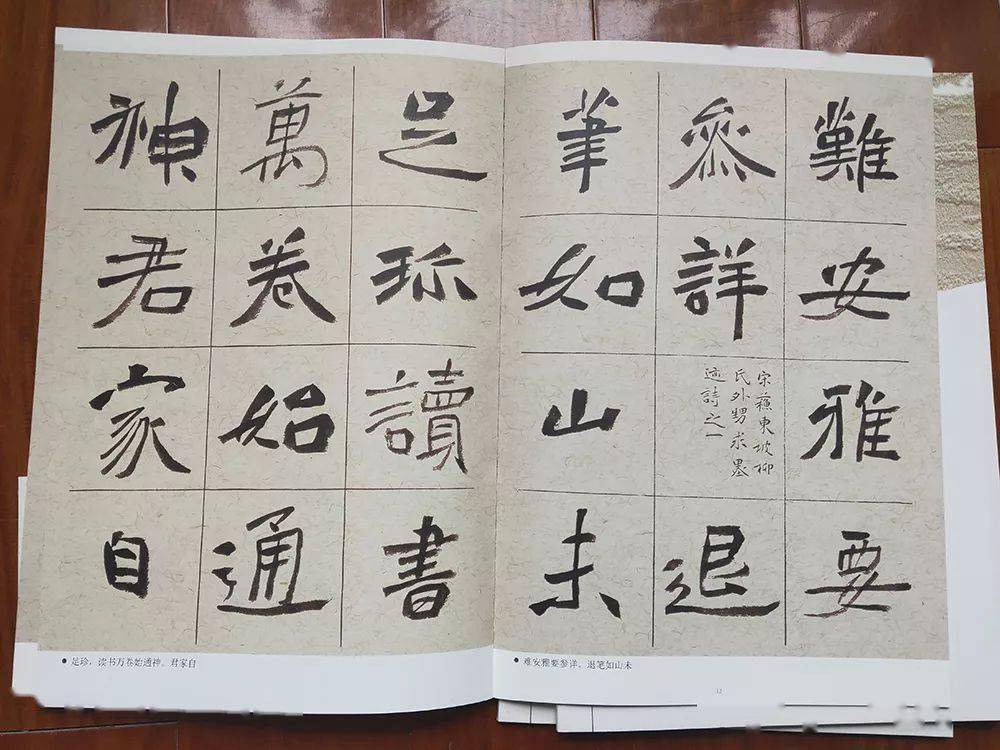 難安雅要
參詳
宋蘇東坡柳
氏外甥求墨
迹詩之一
退
筆如山未
足珍讀書
萬卷始通
神君家自
難安雅要参详。退笔如山未
12
足珍，读书万卷始通神。君家自